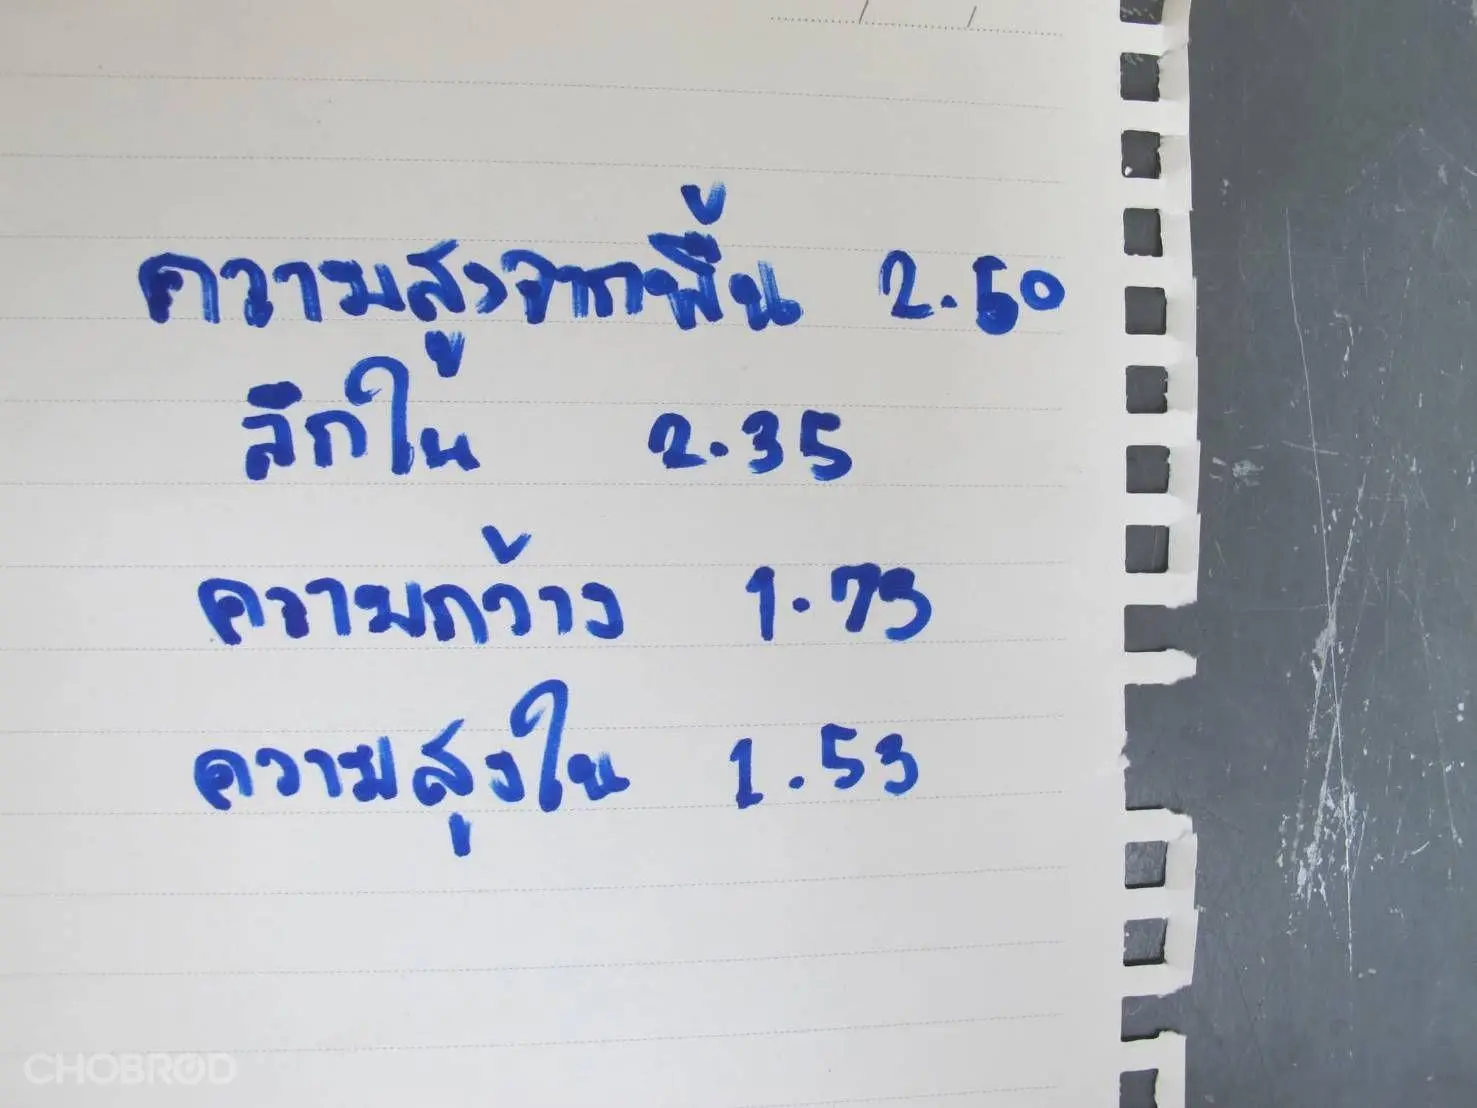 ความสูงจากพื้น 2.50
ลึกใน 2.35
ความกว้าง 1.73
ความสูงใน 1.53
CHOBROD